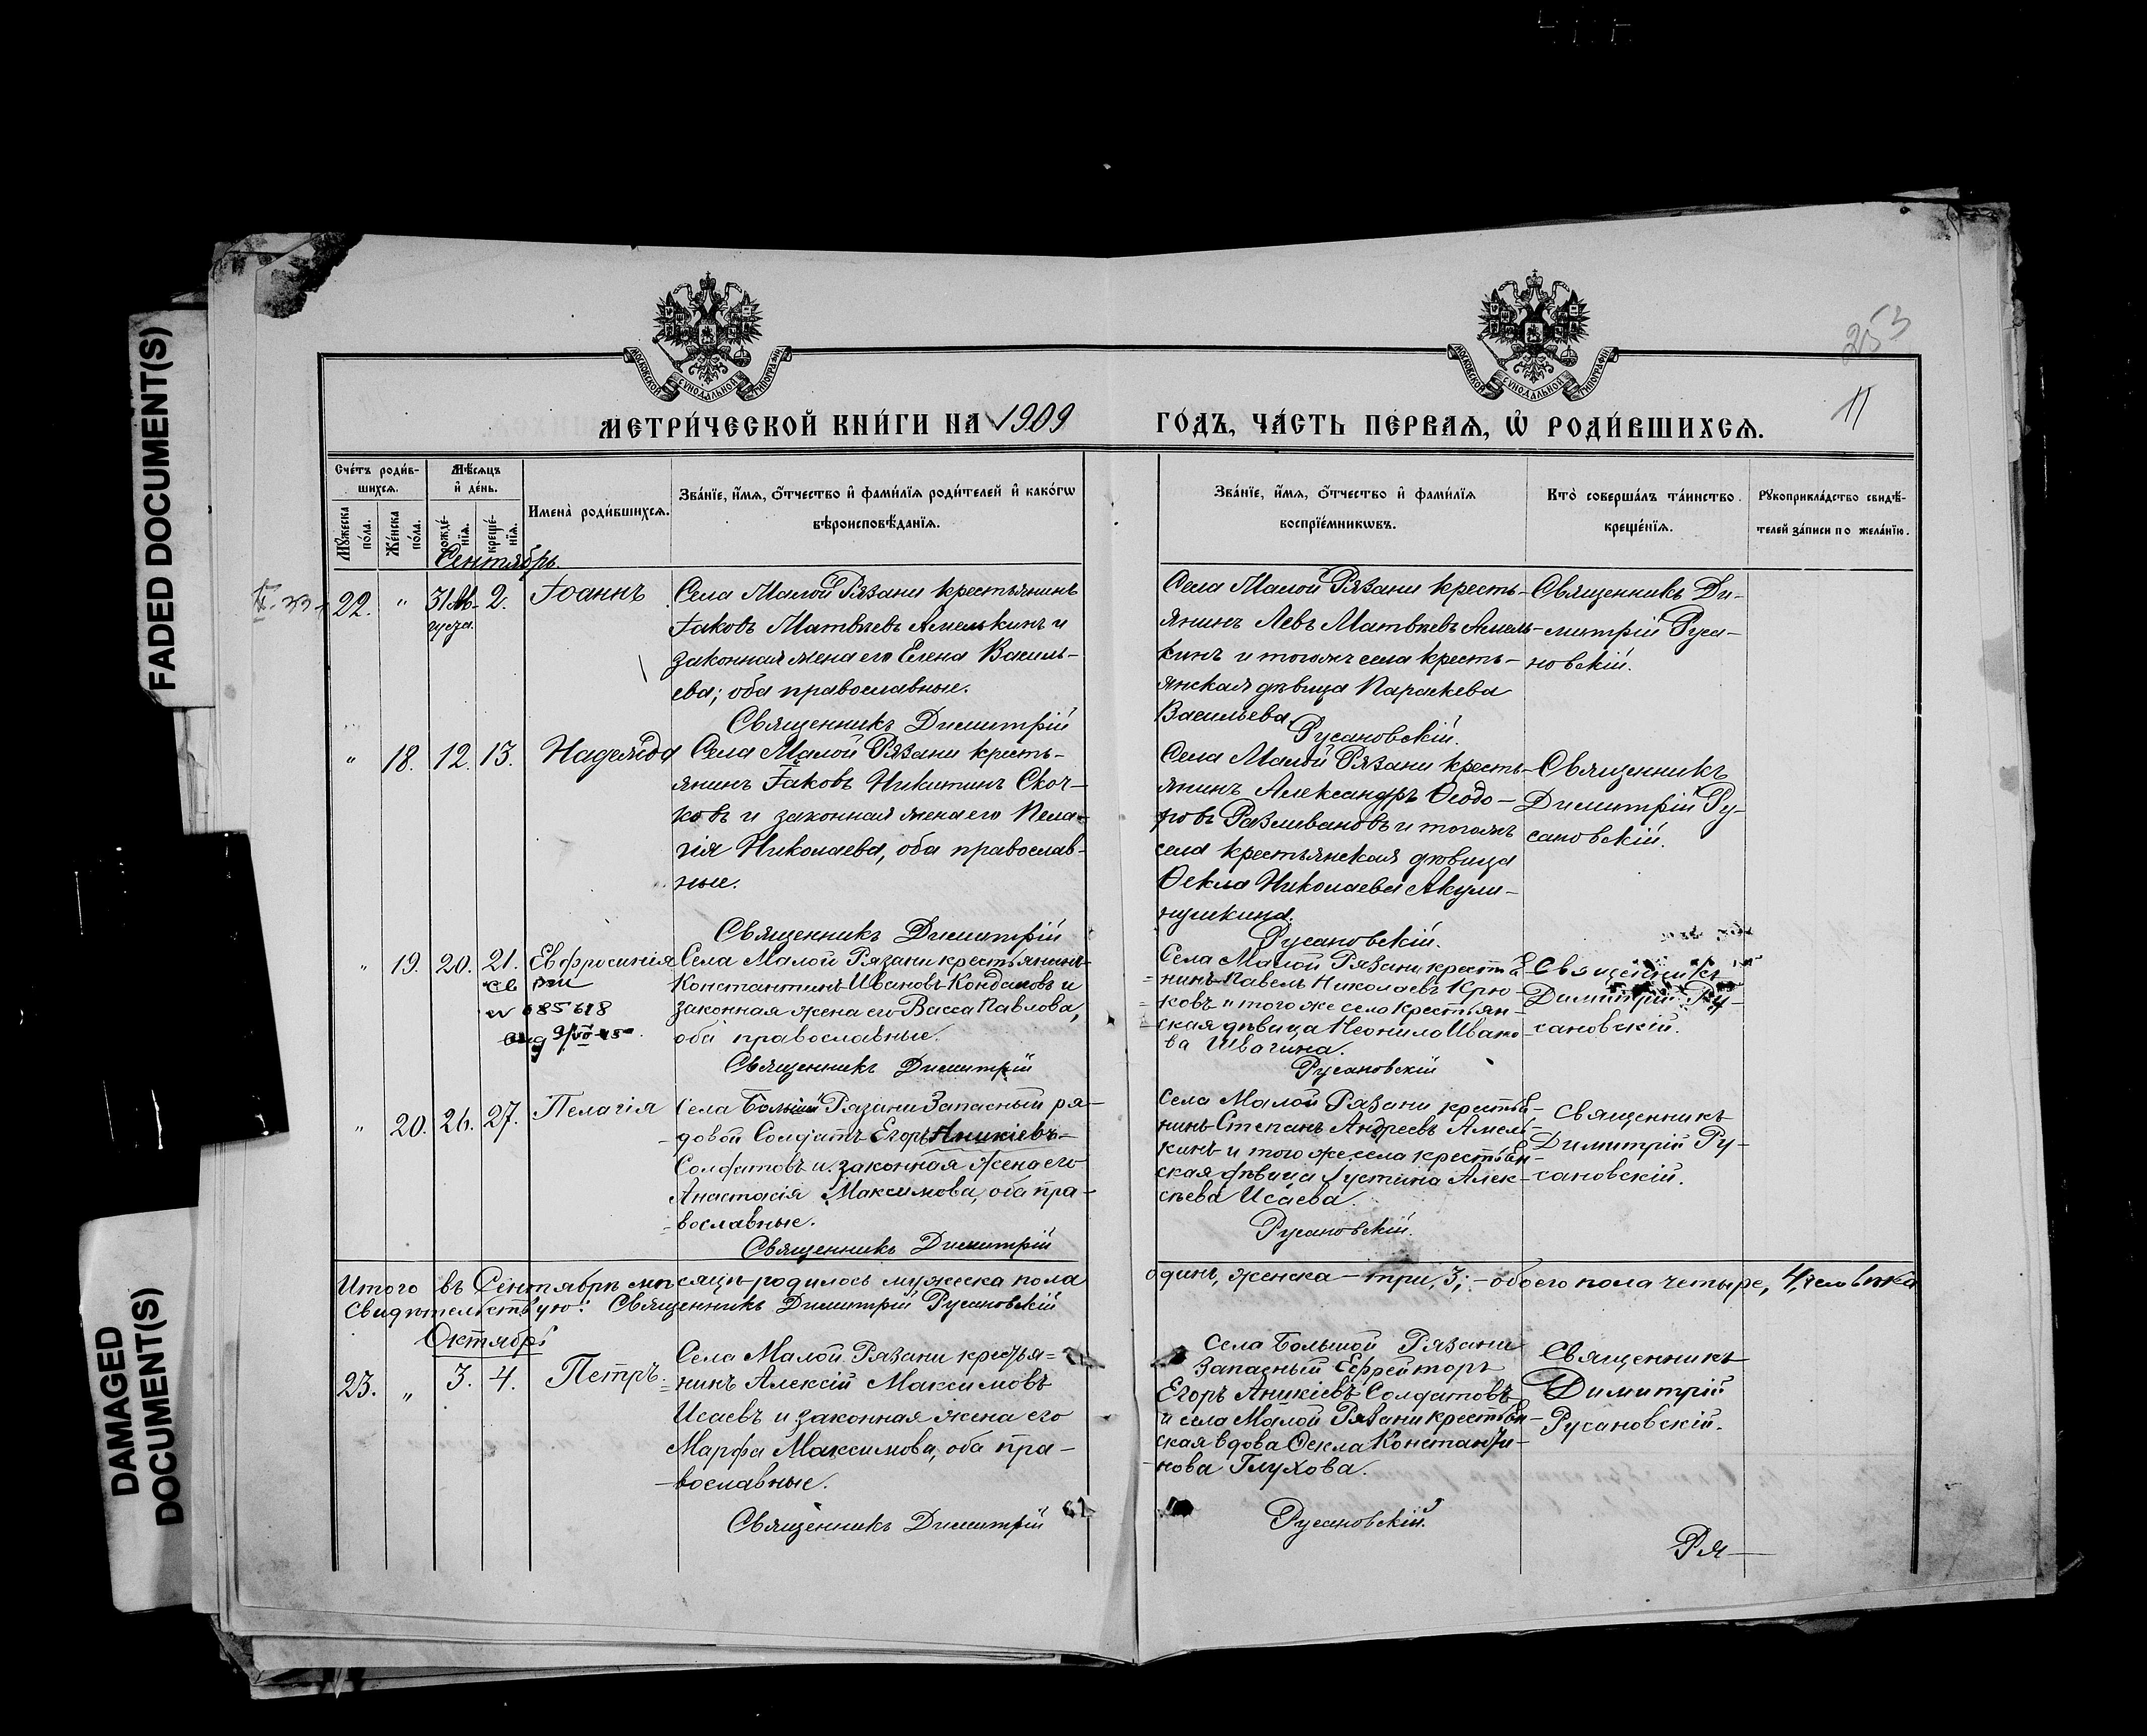 FADED DOCUMENT(S)
DAMAGED
DOCUMENT(S)
253
11
МОСКОВСКОЙ СѴНОДАЛЬНОЙ ТИПОГРАФІИ
МОСКОВСКОЙ СѴНОДАЛЬНОЙ ТИПОГРАФІИ
МЕТРИ́ЧЕСКОЙ КНИ́ГИ НА 1909
ГО́ДЪ, ЧА́СТЬ ПЕ́РВАѦ, Ѡ҆ РОДИ́ВШИХСѦ.
Сче́тъ роди́в-
шихсѧ.
Мѣ́сѧцъ
и҆ де́нь.
Имена̀ роди́вшихсѧ.
Зва́нїе, и҆́мѧ, ѻ҆́тчество и҆ фами́лїѧ роди́телей и҆ како́гѡ
вѣроисповѣ́данїѧ.
Мꙋ́жеска
по́ла.
Же́нска
по́ла.
рожде́-
нїѧ.
креще́-
нїѧ.
Зва́нїе, и҆́мѧ, ѻ҆́тчество и҆ фами́лїѧ
воспрїе́мникѡвъ.
Кто̀ соверша́лъ та́инство
креще́нїѧ.
Рꙋкоприкла́дство свидѣ́-
телей за́писи по жела́нїю.
Сентябрь.
22. " 31 Ав- 2. Іоаннъ
густа.
Села Малой Рязани крестьянинъ
Іаковъ Матвѣевъ Амелькинъ и
законная жена его Елена Василь-
ева; оба православные.
Священникъ Димитрій
Села Малой Рязани кресть-
янинъ Левъ Матвѣевъ Амель-
кинъ и тогожъ села кресть-
янская дѣвица Параскева
Васильева.
Русановскій.
Священникъ Ди-
митрій Руса-
новскій.
" 18. 12. 13. Надежда
Села Малой Рязани кресть-
янинъ Іаковъ Никитинъ Скоч-
ковъ и законная жена его Пела-
гія Николаева, оба православ-
ные.
Священникъ Димитрій
Села Малой Рязани кресть-
янинъ Александръ Ѳеодо-
ровъ Разливановъ и тогожъ
села крестьянская дѣвица
Ѳекла Николаева Акули-
нушкина.
Русановскій.
Священникъ
Димитрій Ру-
сановскій.
" 19. 20. 21. Евфросинія
св
685618
Села Малой Рязани крестьянинъ
Константинъ Ивановъ Кондаковъ и
законная жена его Васса Павлова,
оба православные.
Священникъ Димитрій
Села Малой Рязани крестья-
нинъ Павелъ Николаевъ Крю-
ковъ и того же села крестьян-
ская дѣвица Неонила Ивано-
ва Швагина.
Русановскій
Священникъ
Димитрій Ру-
сановскій.
" 20. 26. 27. Пелагія
Села Большой Рязани Запасный ря-
довой Солдатъ Егоръ Аникіевъ
Солдатовъ и законная жена его
Анастасія Максимова, оба пра-
вославные.
Священникъ Димитрій
Села Малой Рязани крестья-
нинъ Степанъ Андреевъ Амель-
кинъ и того же села крестьян-
ская дѣвица Іустина Алек-
сѣева Исаева.
Русановскій.
Священникъ
Димитрій Ру-
сановскій.
Итого въ Сентябрѣ мѣсяцѣ родилось мужеска пола
одинъ, женска – три, 3; – обоего пола четыре, 4, человѣка
Свидѣтельствую: Священникъ Димитрій Русановскій
Октябрь
23. " 3. 4. Петръ.
Села Малой Рязани крестья-
нинъ Алексій Максимовъ
Исаевъ и законная жена его
Марфа Максимова, оба пра-
вославные.
Священникъ Димитрій
Села Большой Рязани
Запасный Ефрейторъ
Егоръ Аникіевъ Солдатовъ
и села Малой Рязани крестьян-
ская вдова Ѳекла Константи-
нова Глухова.
Русановскій.
Священникъ
Димитрій
Русановскій.
Ря—